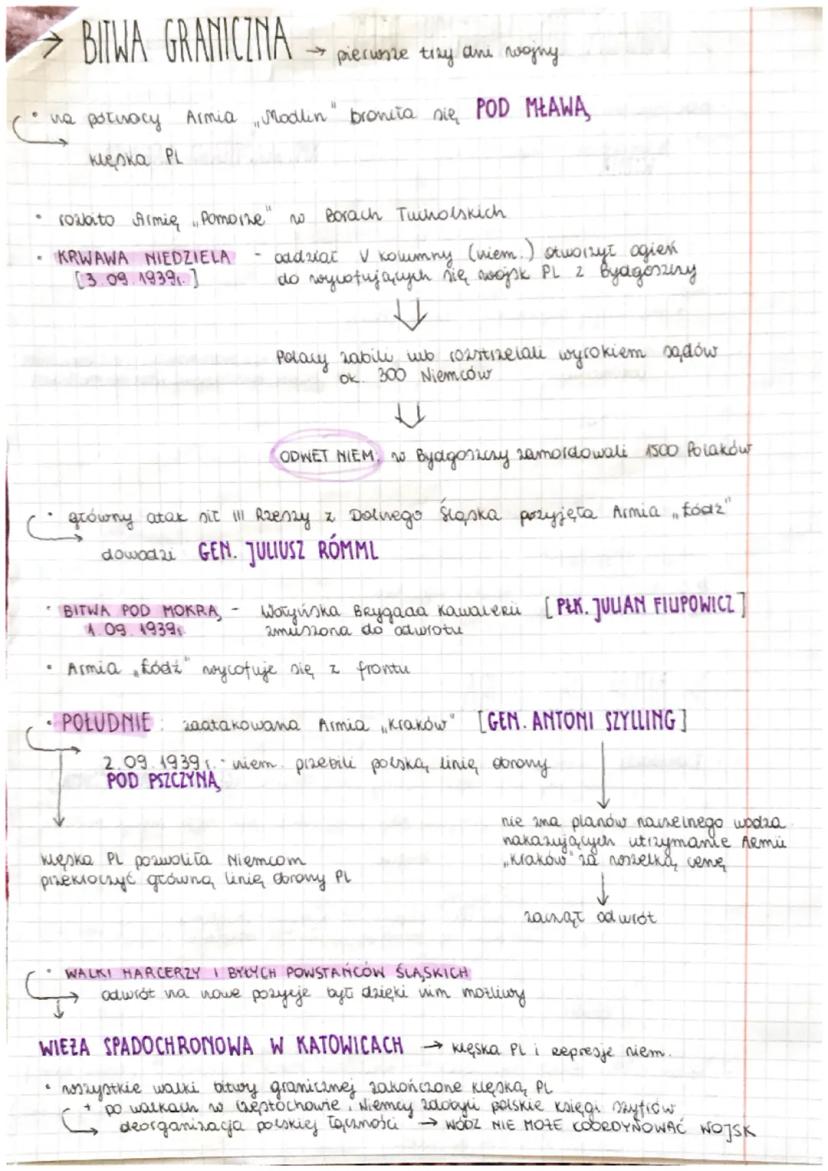 → BITWA GRANICZNA → pierwsze trzy dni wojny
• na północy Armia „Modlin" broniła się POD MŁAWĄ
klęska PL
• rozbito Armię „Pomorze" w Borach Tucholskich
• KRWAWA NIEDZIELA - oddział V kolumny (niem.) otworzył ogień
[3.09.1939r.] do wycofujących się wojsk PL z Bydgoszczy
Polacy zabili lub rozstrzelali wyrokiem sądów
ok. 300 Niemców
ODWET NIEM. w Bydgoszczy zamordowali 1500 Polaków
• główny atak sił III Rzeszy z Dolnego Śląska przyjęła Armia „Łódź"
dowodzi GEN. JULIUSZ RÓMML
• BITWA POD MOKRĄ - Wołyńska Brygada Kawalerii [PŁK. JULIAN FILIPOWICZ]
1.09.1939r. zmuszona do odwrotu
• Armia „Łódź" wycofuje się z frontu
• POŁUDNIE : zaatakowana Armia „Kraków" [GEN. ANTONI SZYLLING]
2.09.1939r. - niem. przebili polską linię obrony
POD PSZCZYNĄ
nie zna planów naczelnego wodza
nakazujących utrzymanie Armii
„Kraków" za wszelką cenę
klęska PL pozwoliła Niemcom
przekroczyć główną linię obrony PL
zaczął odwrót
• WALKI HARCERZY I BYŁYCH POWSTAŃCÓW ŚLĄSKICH
→ odwrót na nowe pozycje był dzięki nim możliwy
WIEŻA SPADOCHRONOWA W KATOWICACH → klęska PL i represje niem.
• wszystkie walki bitwy granicznej zakończone klęską PL
+ po walkach w Częstochowie, Niemcy zdobyli polskie księgi szyfrów
→ deorganizacja polskiej łączności → WÓDZ NIE MOŻE COORDYNOWAĆ WOJSK